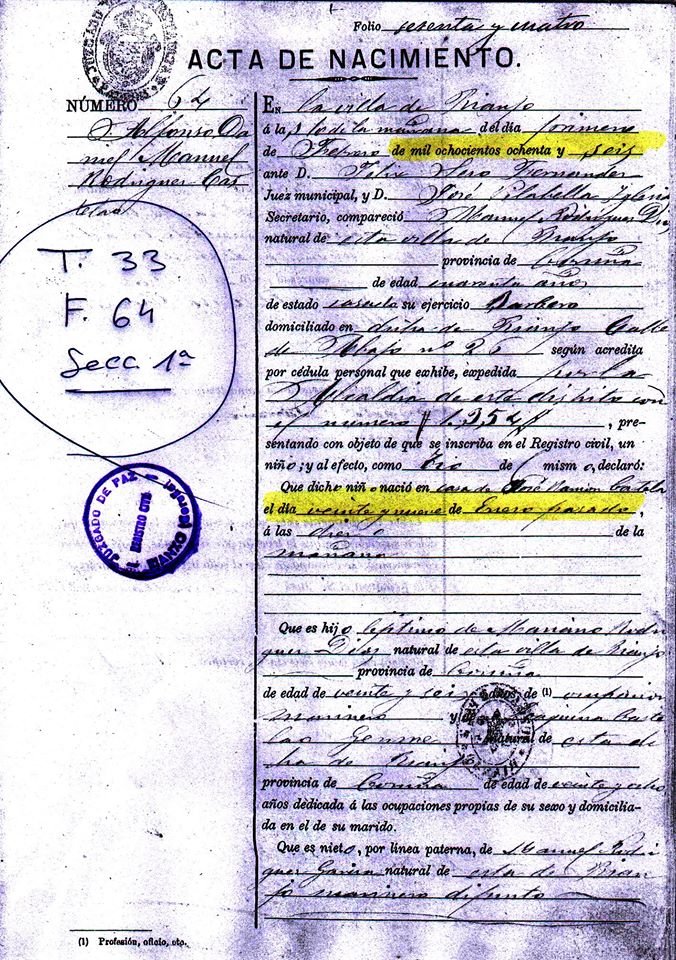 Folio sesenta y cuatro
ACTA DE NACIMIENTO.
NÚMERO 64
Alfonso Da
niel Manuel
Rodriguez Cas
telao
T. 33
F. 64
Secc 1ª
JUZGADO DE PAZ
REGISTRO CIVIL
RIANXO
EN la villa de Rianjo
á la s de la mañana del día primero
de Febrero de mil ochocientos ochenta y seis
ante D. Felix Fernandez
Juez municipal, y D. José Iglesia
Secretario, compareció Manuel Rodriguez
natural de esta villa de Rianjo
provincia de Coruña
de edad cuarenta años
de estado casado su ejercicio Barbero
domiciliado en dicha de Rianjo Calle
de Abajo nº 26 según acredita
por cédula personal que exhibe, expedida por la
Alcaldia de este distrito con
el numero , pre-
sentando con objeto de que se inscriba en el Registro civil, un
niño; y al efecto, como tio de l mismo, declaró:
Que dicho niño nació en casa de José Ramon Castelao
el día veinte y nueve de Enero pasado,
á las diez de la
mañana
Que es hijo legitimo de Mariano Rodri
guez Dios natural de esta villa de Rianjo
provincia de Coruña
de edad de veinte y seis años, de (1) ocupacion
marinero y de Joaquina Caste
lao Gemme natural de esta di
cha de Rianjo
provincia de Coruña de edad de veinte y ocho
años dedicada á las ocupaciones propias de su sexo y domicilia-
da en el de su marido.
Que es nieto, por línea paterna, de Manuel Rodri
guez Garcia natural de esta de Rian
jo marinero difunto
(1) Profesión, oficio, etc.